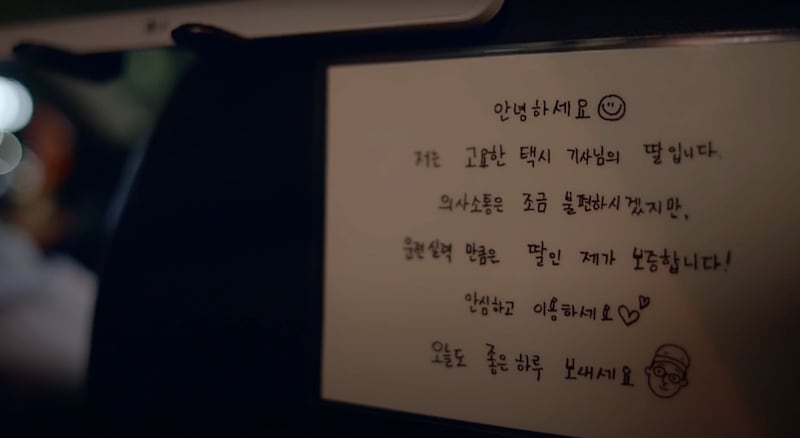 안녕하세요
저는 고요한 택시 기사님의 딸입니다.
의사소통은 조금 불편하시겠지만,
운전실력 만큼은 딸인 제가 보증합니다!
안심하고 이용하세요
오늘도 좋은 하루 보내세요